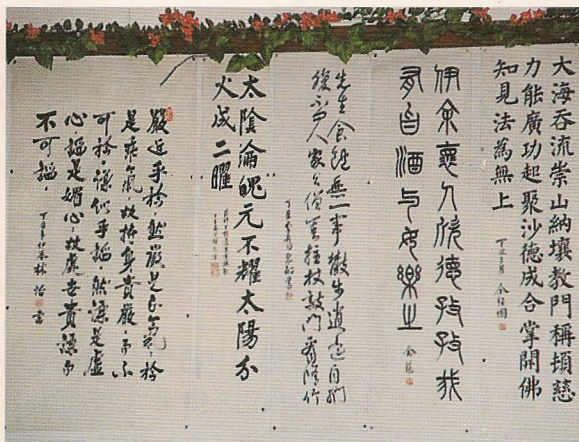 大海吞流崇山納壤教門稱頓慈
力能廣功起聚沙德成合掌開佛
知見法為無上
伊余褱人欣德孜孜我
有旨酒与女樂之
先生食飽無一事散步逍遙自捫
腹不問人家與僧舍拄杖敲門看修竹
太陰淪魄元不耀太陽分
火成二曜
嚴近乎矜，然嚴是正氣，矜
是乖氣，故持身貴嚴而不
可矜，謙似乎諂，然謙是虛
心，諂是媚心，故處世貴謙而
不可諂。